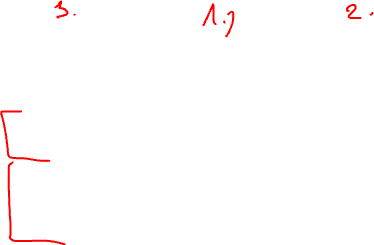 3. 1.) 2.